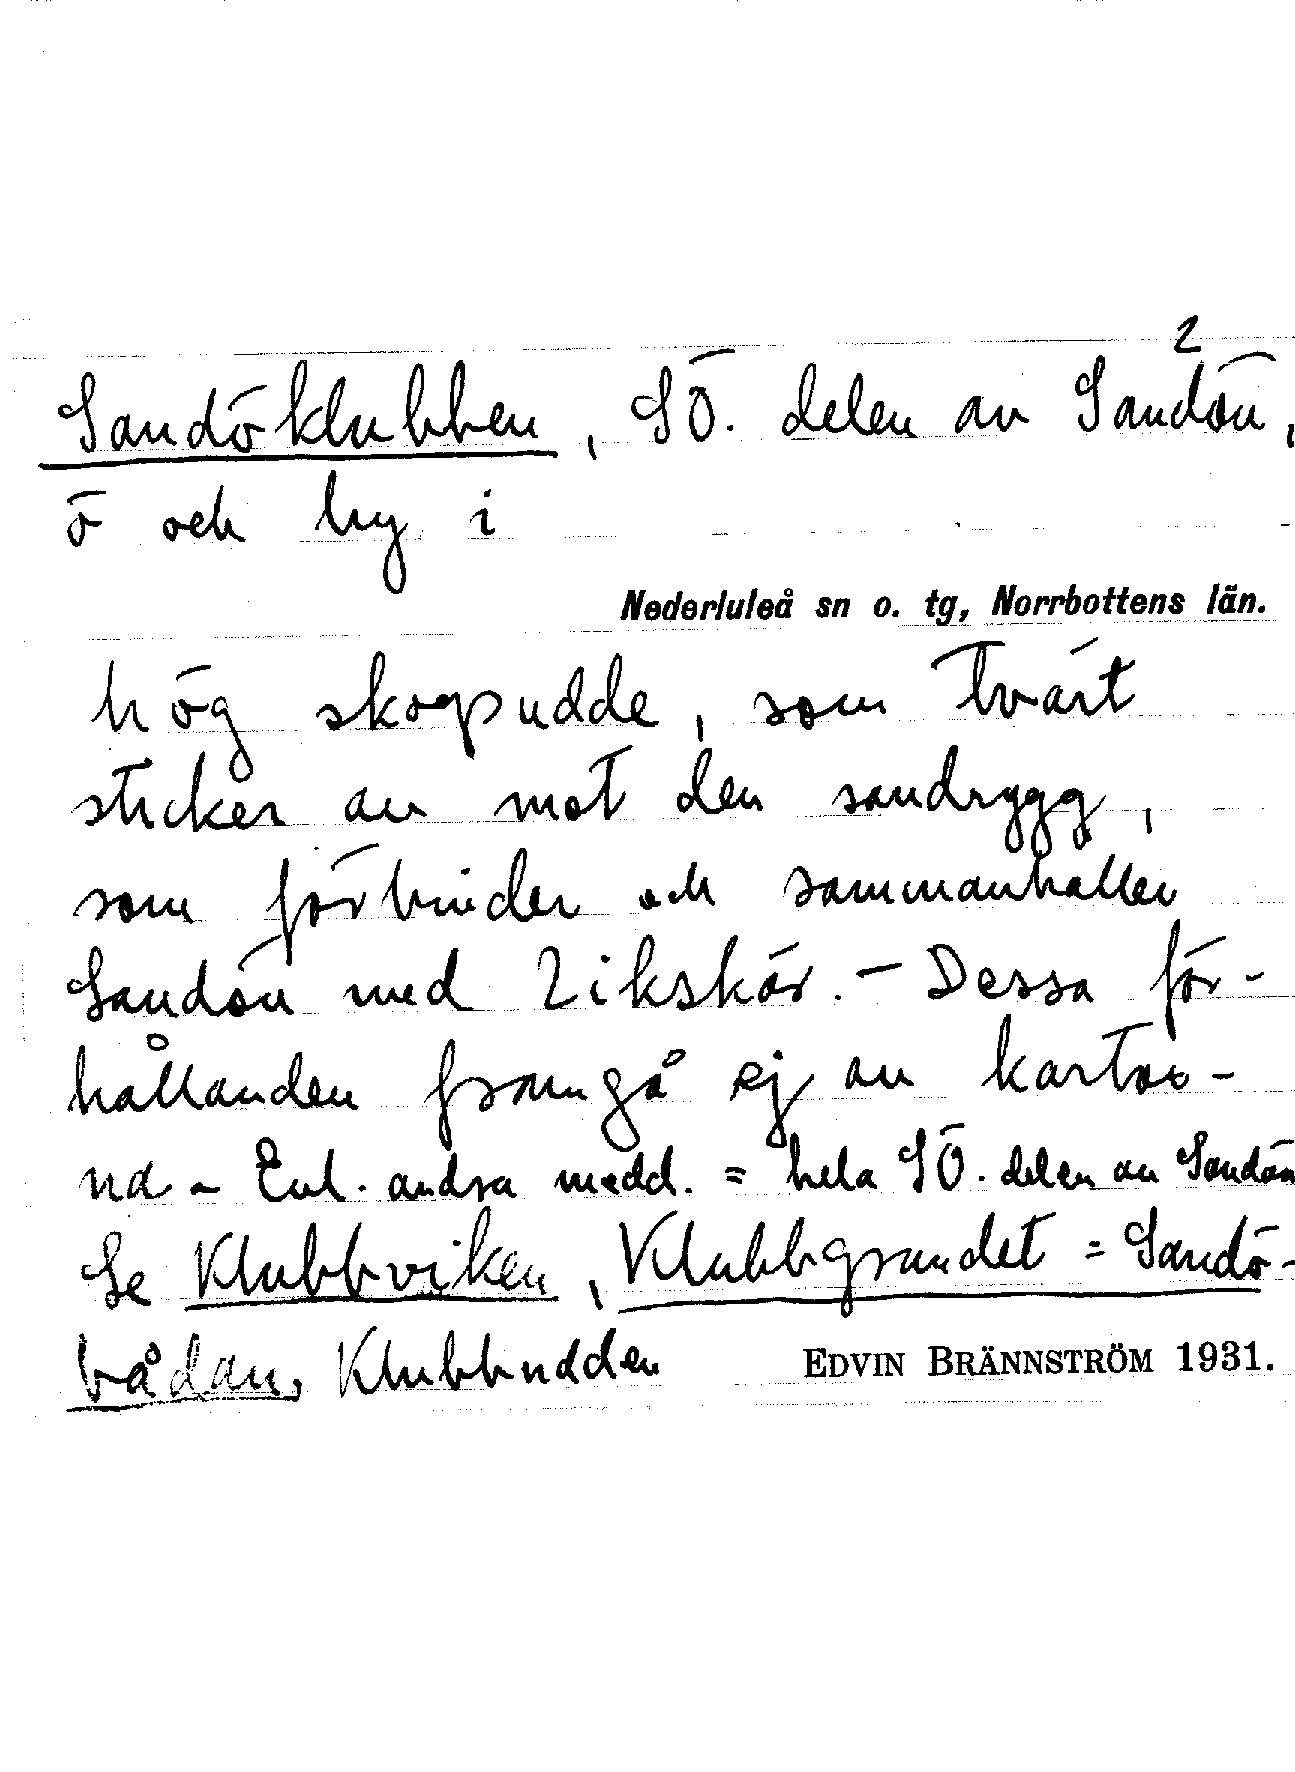 2
Sandöklubben, SÖ. delen av Sandön,
ö och by i
Nederluleå sn o. tg, Norrbottens län.
hög skogudde, som tvärt
sticker av mot den sandrygg,
som förbinder och sammanhåller
Sandön med Likskär. – Dessa för-
hållanden framgå ej av kartor-
na – Enl. andra medd. = hela SÖ. delen av Sandön
Se Klubbviken, Klubbgrundet = Sandö-
bådan, Klubbudden
EDVIN BRÄNNSTRÖM 1931.